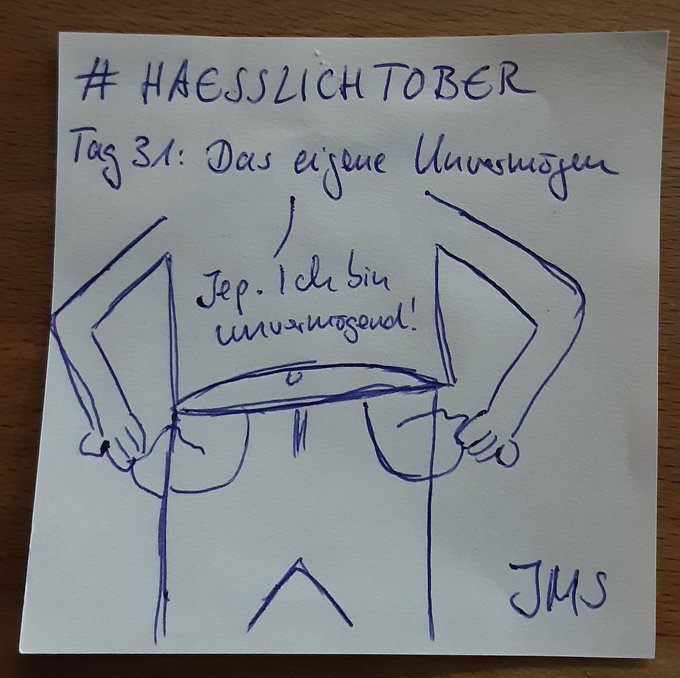 # HAESSLICHTOBER
Tag 31: Das eigene Unvermögen
Jep. Ich bin
unvermögend!
JMS